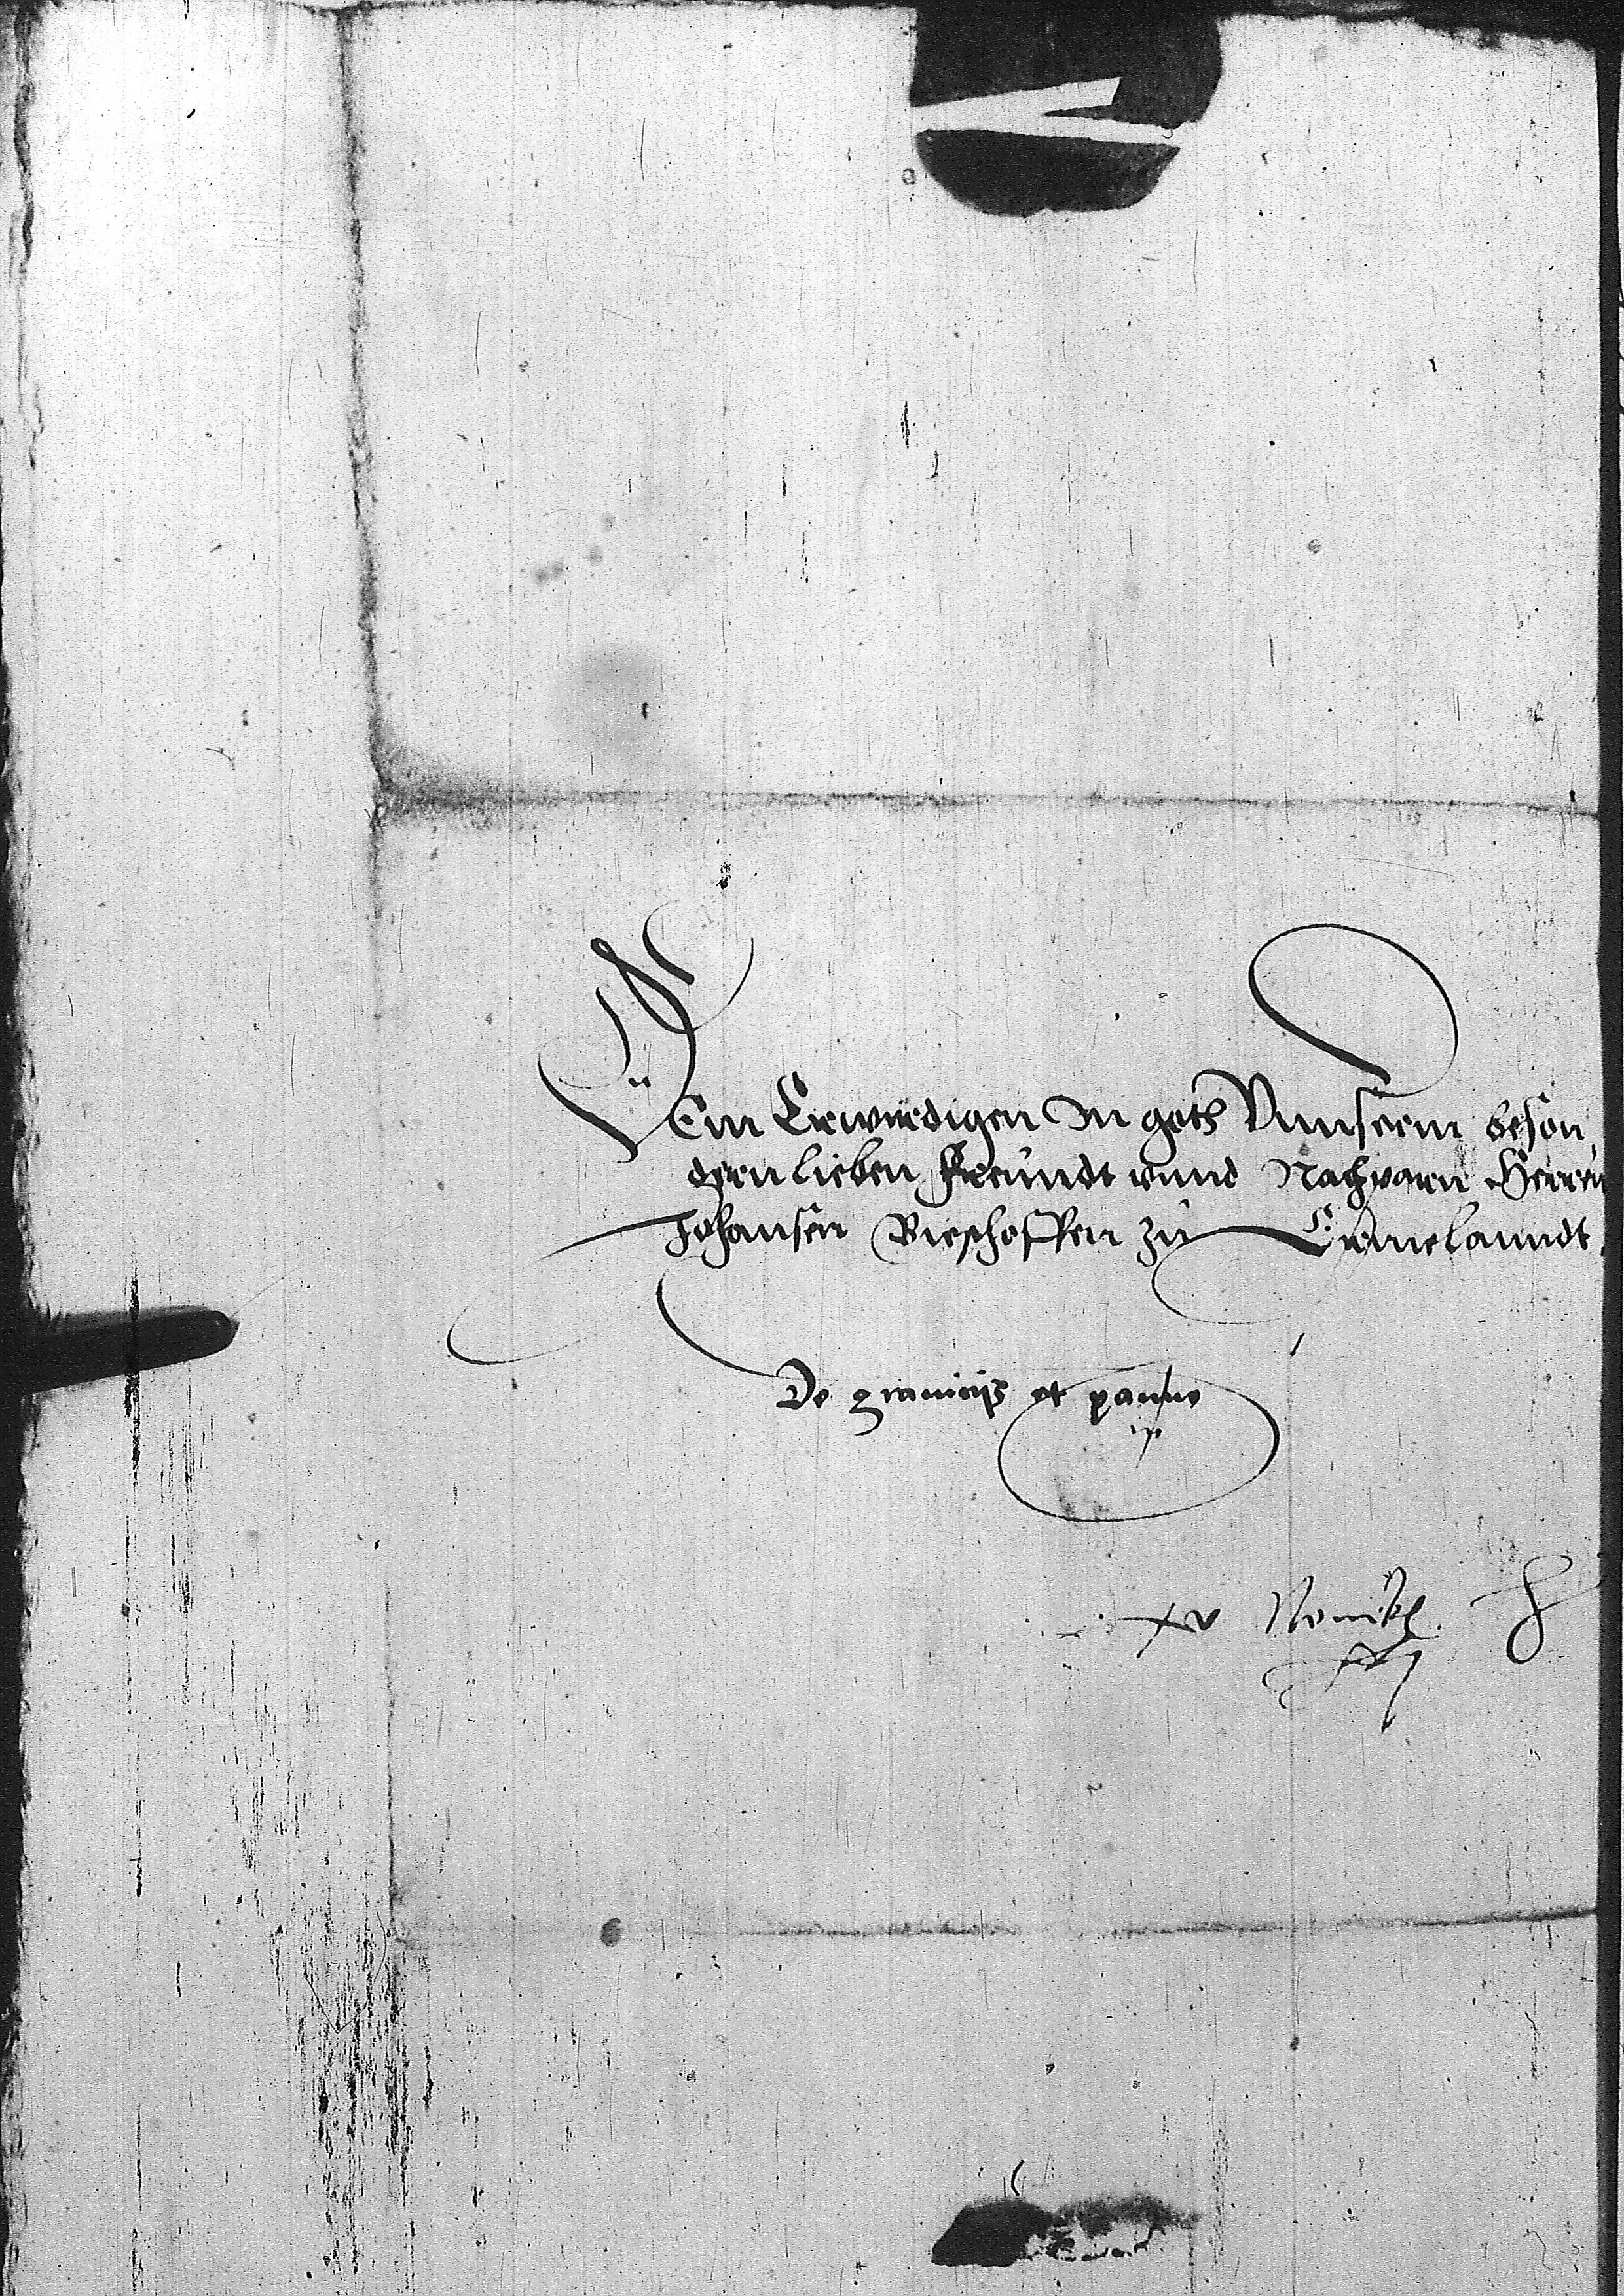 Dem Erwirdigen In goth Vnnserm beson
dern lieben Freundt vnnd Nachparn Herren
Johansen Bieschoffen zu Ermelanndt
De graniciis et panno
xv Nouēbr.